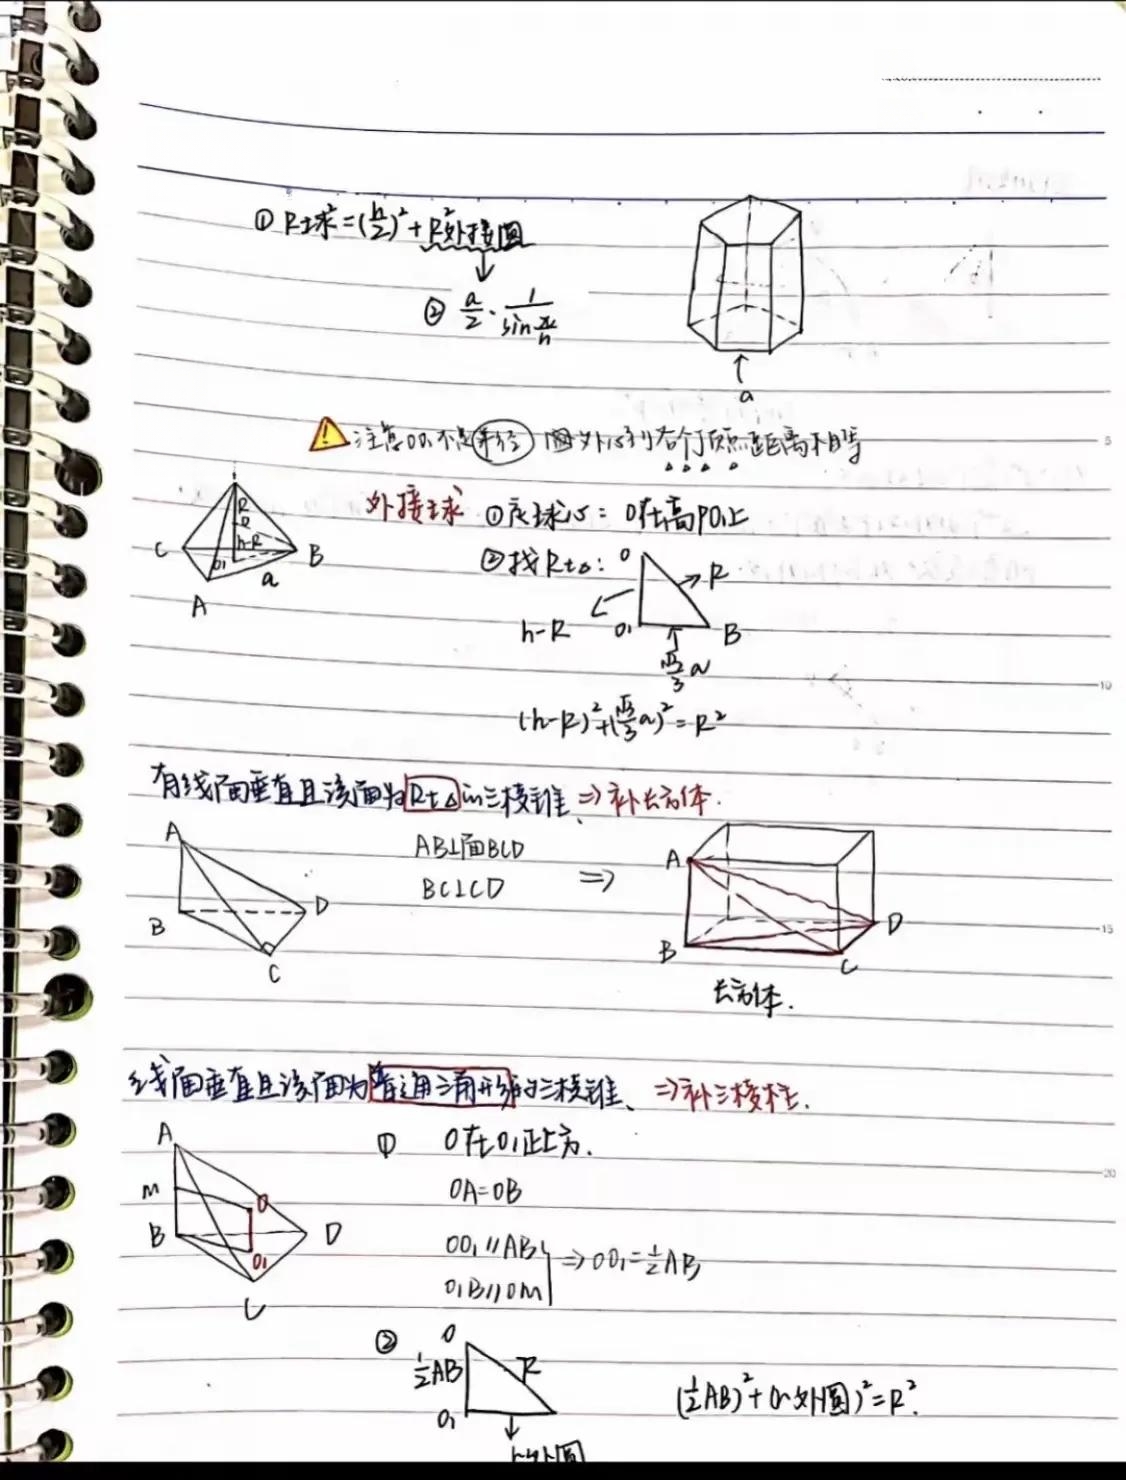 ① R球²=(h/2)²+R²外接圆
② a/2·1/sin π/n
a
注意OO₁不是半径 圆外心到各个顶点距离相等
外接球 ①定球心: O在高PO₁上
R
R
h-R
C
O₁
B
a
A
②找Rt△:
O
R
h-R
O₁
B
√3/3 a
(h-R)²+(√3/3 a)²=R²
有线面垂直且该面为Rt△的三棱锥、⇒补长方体.
A
B
D
C
AB⊥面BCD
BC⊥CD
⇒
A
B
D
C
长方体.
线面垂直且该面为普通三角形的三棱锥、⇒补三棱柱.
A
M
B
O
O₁
D
C
① O在O₁正上方.
OA=OB
OO₁//AB
O₁B//OM
⇒OO₁=½AB
②
O
½AB
R
O₁
r外圆
(½AB)²+(r外圆)²=R².
5
10
15
20